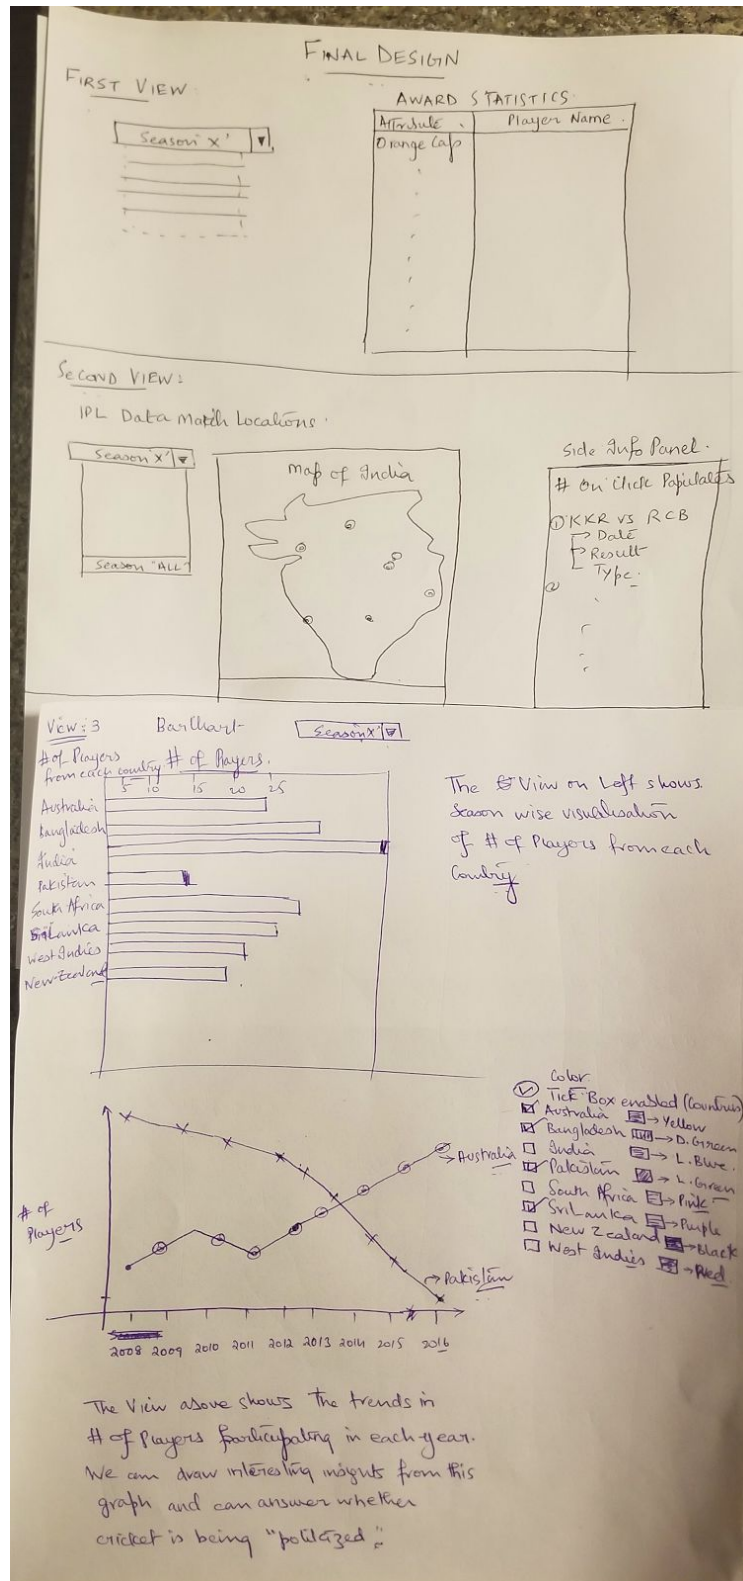 FINAL DESIGN
FIRST VIEW
Season 'X'
AWARD STATISTICS
Attribute
Player Name
Orange Cap
SECOND VIEW:
IPL Data Match Locations
Season 'X'
Season "ALL"
Map of India
Side Info Panel
# On Click Populates
① KKR vs RCB
Date
Result
Type
②
View: 3
BarChart
Season X'
# of Players
from each country
# of Players.
5 10 15 20 25
Australia
Bangladesh
India
Pakistan
South Africa
Sri Lanka
West Indies
New-Zealand
The View on Left shows
Season wise visualisation
of # of Players from each
Country
Color
Tick Box enabled (Countries)
Australia → Yellow
Bangladesh → D. Green
India → L. Blue.
Pakistan → L. Green
South Africa → Pink
Sri Lanka → Purple
New Zealand → Black
West Indies → Red
# of
Players
Australia
Pakistan
2008 2009 2010 2011 2012 2013 2014 2015 2016
The View above shows the trends in
# of Players participating in each year.
We can draw interesting insights from this
graph and can answer whether
cricket is being "politized".